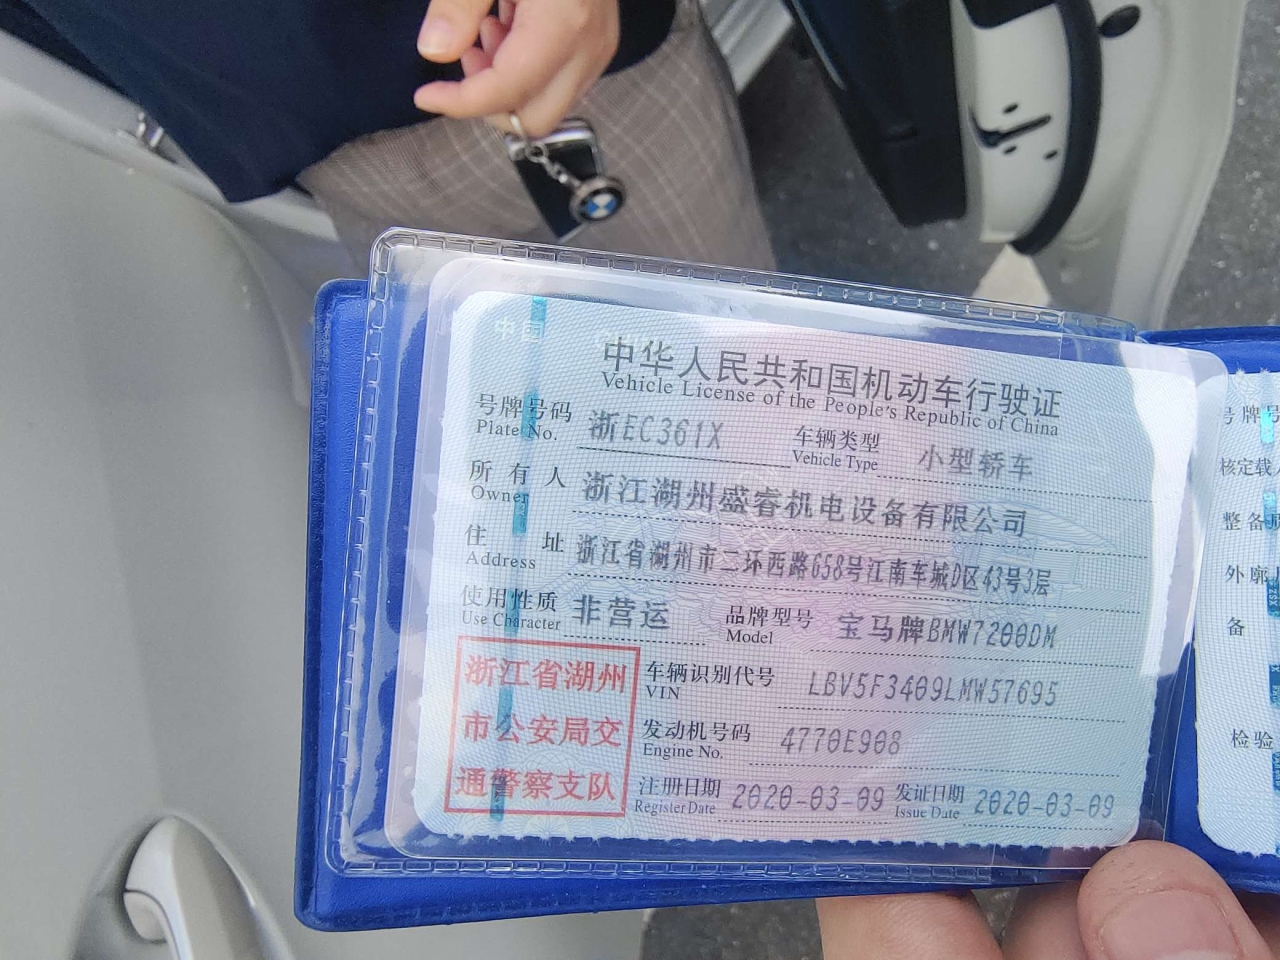 中国
中华人民共和国机动车行驶证
Vehicle License of the People's Republic of China
号牌号码 浙EC361X 车辆类型 小型轿车
Plate No. Vehicle Type
所有人 浙江湖州盛睿机电设备有限公司
Owner
住址 浙江省湖州市二环西路658号江南车城D区43号3层
Address
使用性质 非营运 品牌型号 宝马牌BMW7200DM
Use Character Model
浙江省湖州
市公安局交
通警察支队
车辆识别代号 LBV5F3409LMW57695
VIN
发动机号码 4770E908
Engine No.
注册日期 2020-03-09 发证日期 2020-03-09
Register Date Issue Date
号牌号
核定载
整备
外廓
备
检验